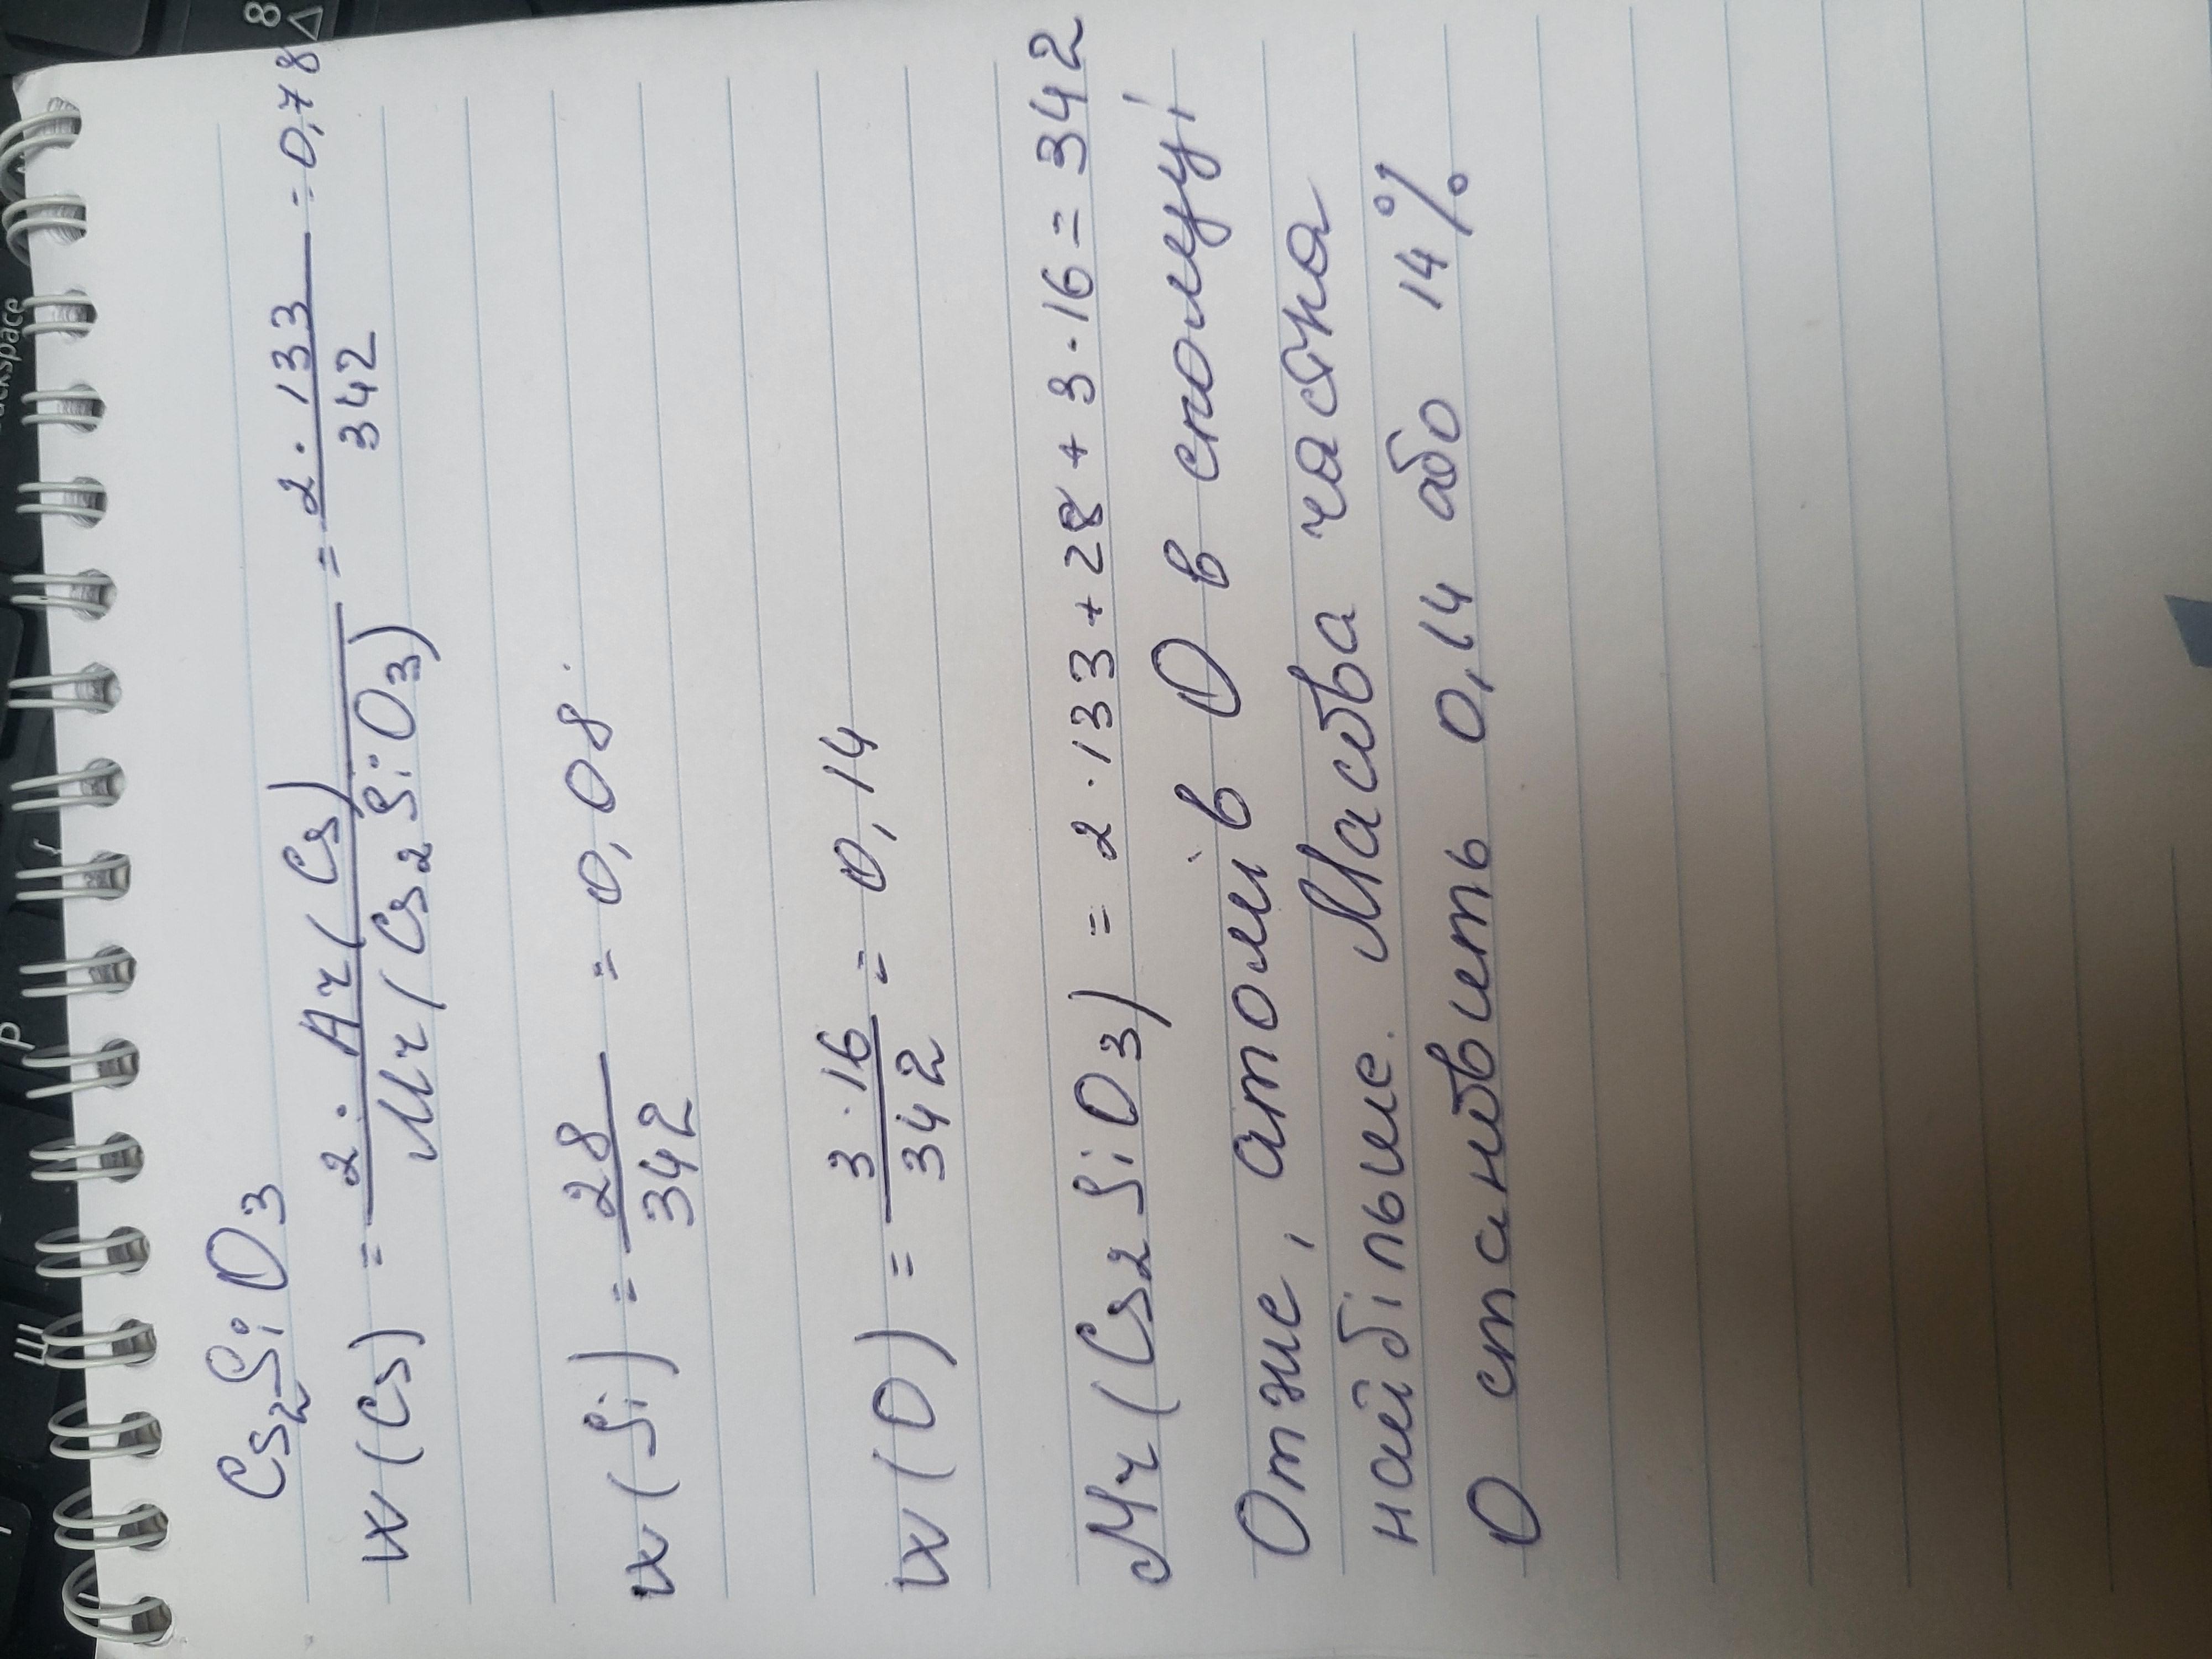 Cs₂SiO₃
w(Cs) = 2 · Ar(Cs) / Mr(Cs₂SiO₃) = 2 · 133 / 342 = 0,78
w(Si) = 28 / 342 = 0,08.
w(O) = 3 · 16 / 342 = 0,14
Mr(Cs₂SiO₃) = 2 · 133 + 28 + 3 · 16 = 342
Отже, атомів O в сполуці
найбільше. Масова частка
O становить 0,14 або 14%